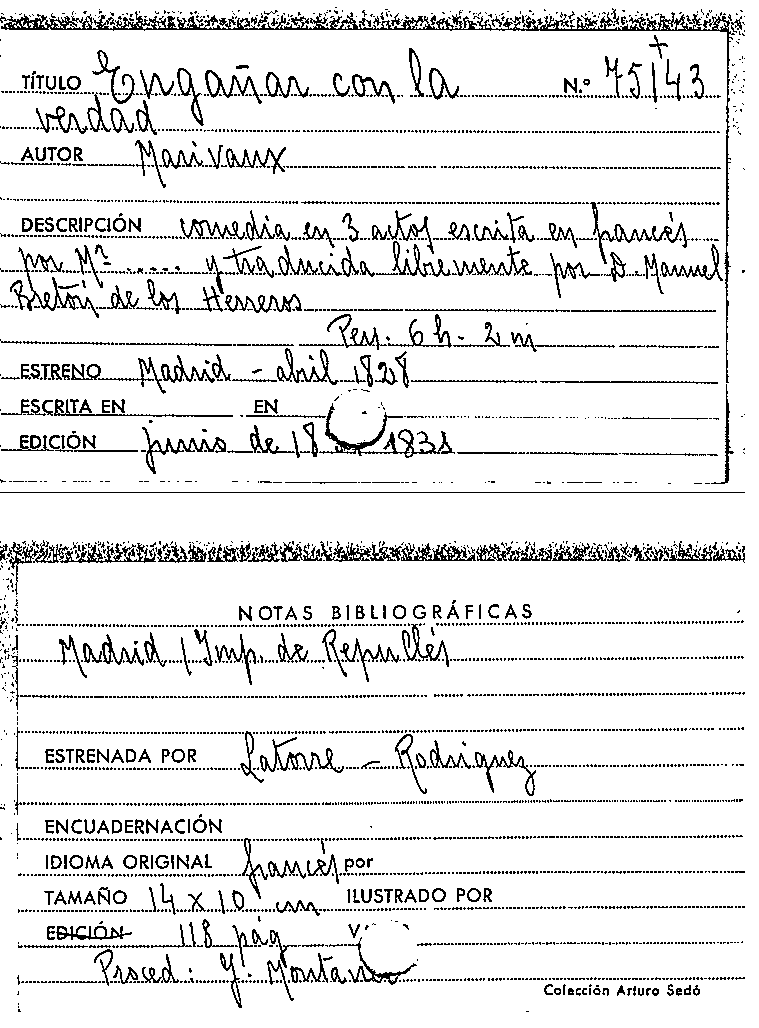 TÍTULO Engañar con la N.º 75143
verdad
AUTOR Marivaux
DESCRIPCIÓN comedia en 3 actos escrita en francés
por Mª ..... y traducida libremente por D. Manuel
Bretón de los Herreros
Pers. 6 h. 2 m
ESTRENO Madrid - abril 1828
ESCRITA EN EN
EDICIÓN junio de 18 1831
NOTAS BIBLIOGRÁFICAS
Madrid / Imp. de Repullés
ESTRENADA POR Latorre - Rodriguez
ENCUADERNACIÓN
IDIOMA ORIGINAL francés por
TAMAÑO 14 x 10 cm ILUSTRADO POR
EDICIÓN 118 pág
Proced: Y.
Colección Arturo Sedó